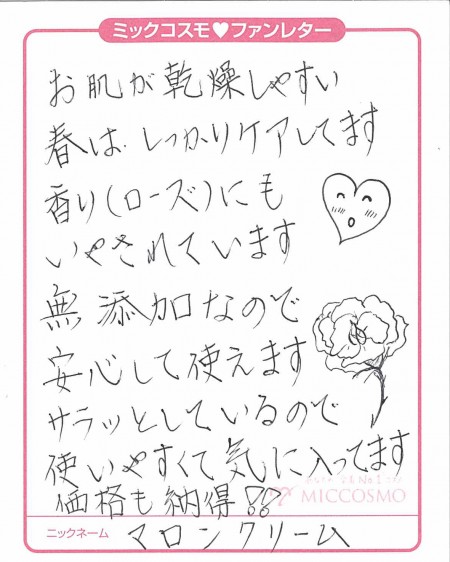 ミックコスモ♥ファンレター
お肌が乾燥しやすい
春は、しっかりケアしてます
香り(ローズ)にも
いやされています
無添加なので
安心して使えます
サラッとしているので
使いやすくて気に入ってます
価格も納得!?
MICCOSMO
ニックネーム マロンクリーム